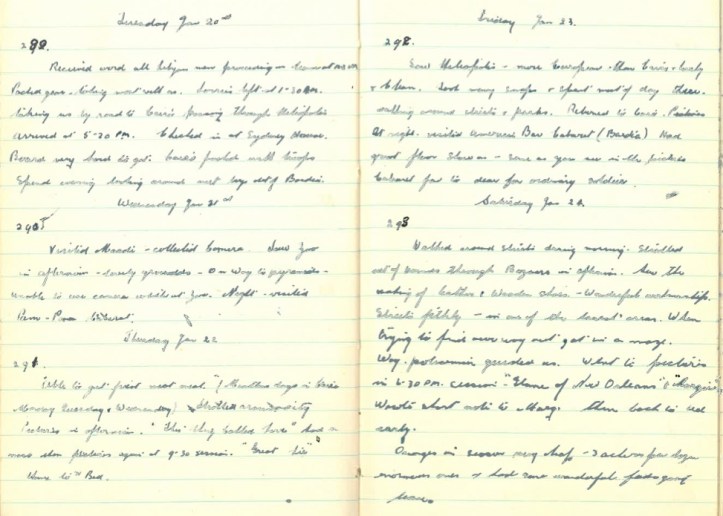 Tuesday Jan 20th
289.
Received word all
Packed gear - taking most with us. left at 1-30 PM.
us by road to Cairo passing through Heliopolis
arrived at 5-30 PM. Checked in at Sydney House.
Board very hard to get. Cairo's packed with troops
Spend evening looking around met boys out of Bardia.
Wednesday Jan 21st
290
Visited Maadi - collected Camera. Saw Zoo
in afternoon - lovely grounds - On way to pyramids -
unable to use camera without Zoo. Night - visited
Cabaret.
Thursday Jan 22
291
Able to get first meat meal. (Meatless days in Cairo
Monday Tuesday & Wednesday) Strolled around city
Pictures in afternoon. "This thing called love" had a
more then pictures again at 9-30 session. "Great Lie"
Home to Bed.
Friday Jan 23.
292.
Saw Heliopolis - more European than Cairo - lovely
& clean. Took many snaps & spent most of day there
walking around streets & parks. Returned to Cairo. Pictures
at night. visited American Bar Cabaret (Bardia) Had
good floor show on - same as you see in the pictures
Cabaret far to dear for ordinary soldier.
Saturday Jan 24
293
Walked around streets during morning. Strolled
out of bounds through Bazaars in afternoon. Saw the
making of leather & wooden shoes. - Wonderful workmanship.
Streets filthy - in one of the areas. When
trying to find our way out got in a maze.
policeman guided us. Went to pictures
in 6.30 PM. session "Flame of New Orleans" &
Wrote short note to Mary. then back to bed
early.
Oranges in season very cheap -
enormous ones & had some wonderful feeds of